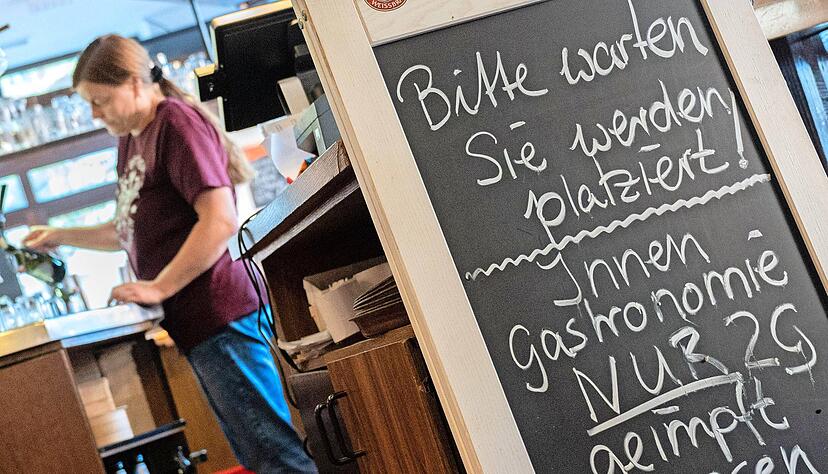 WEISSBI
Bitte warten
Sie werden
platziert!
Innen
Gastronomie
NUR 2G
geimpft